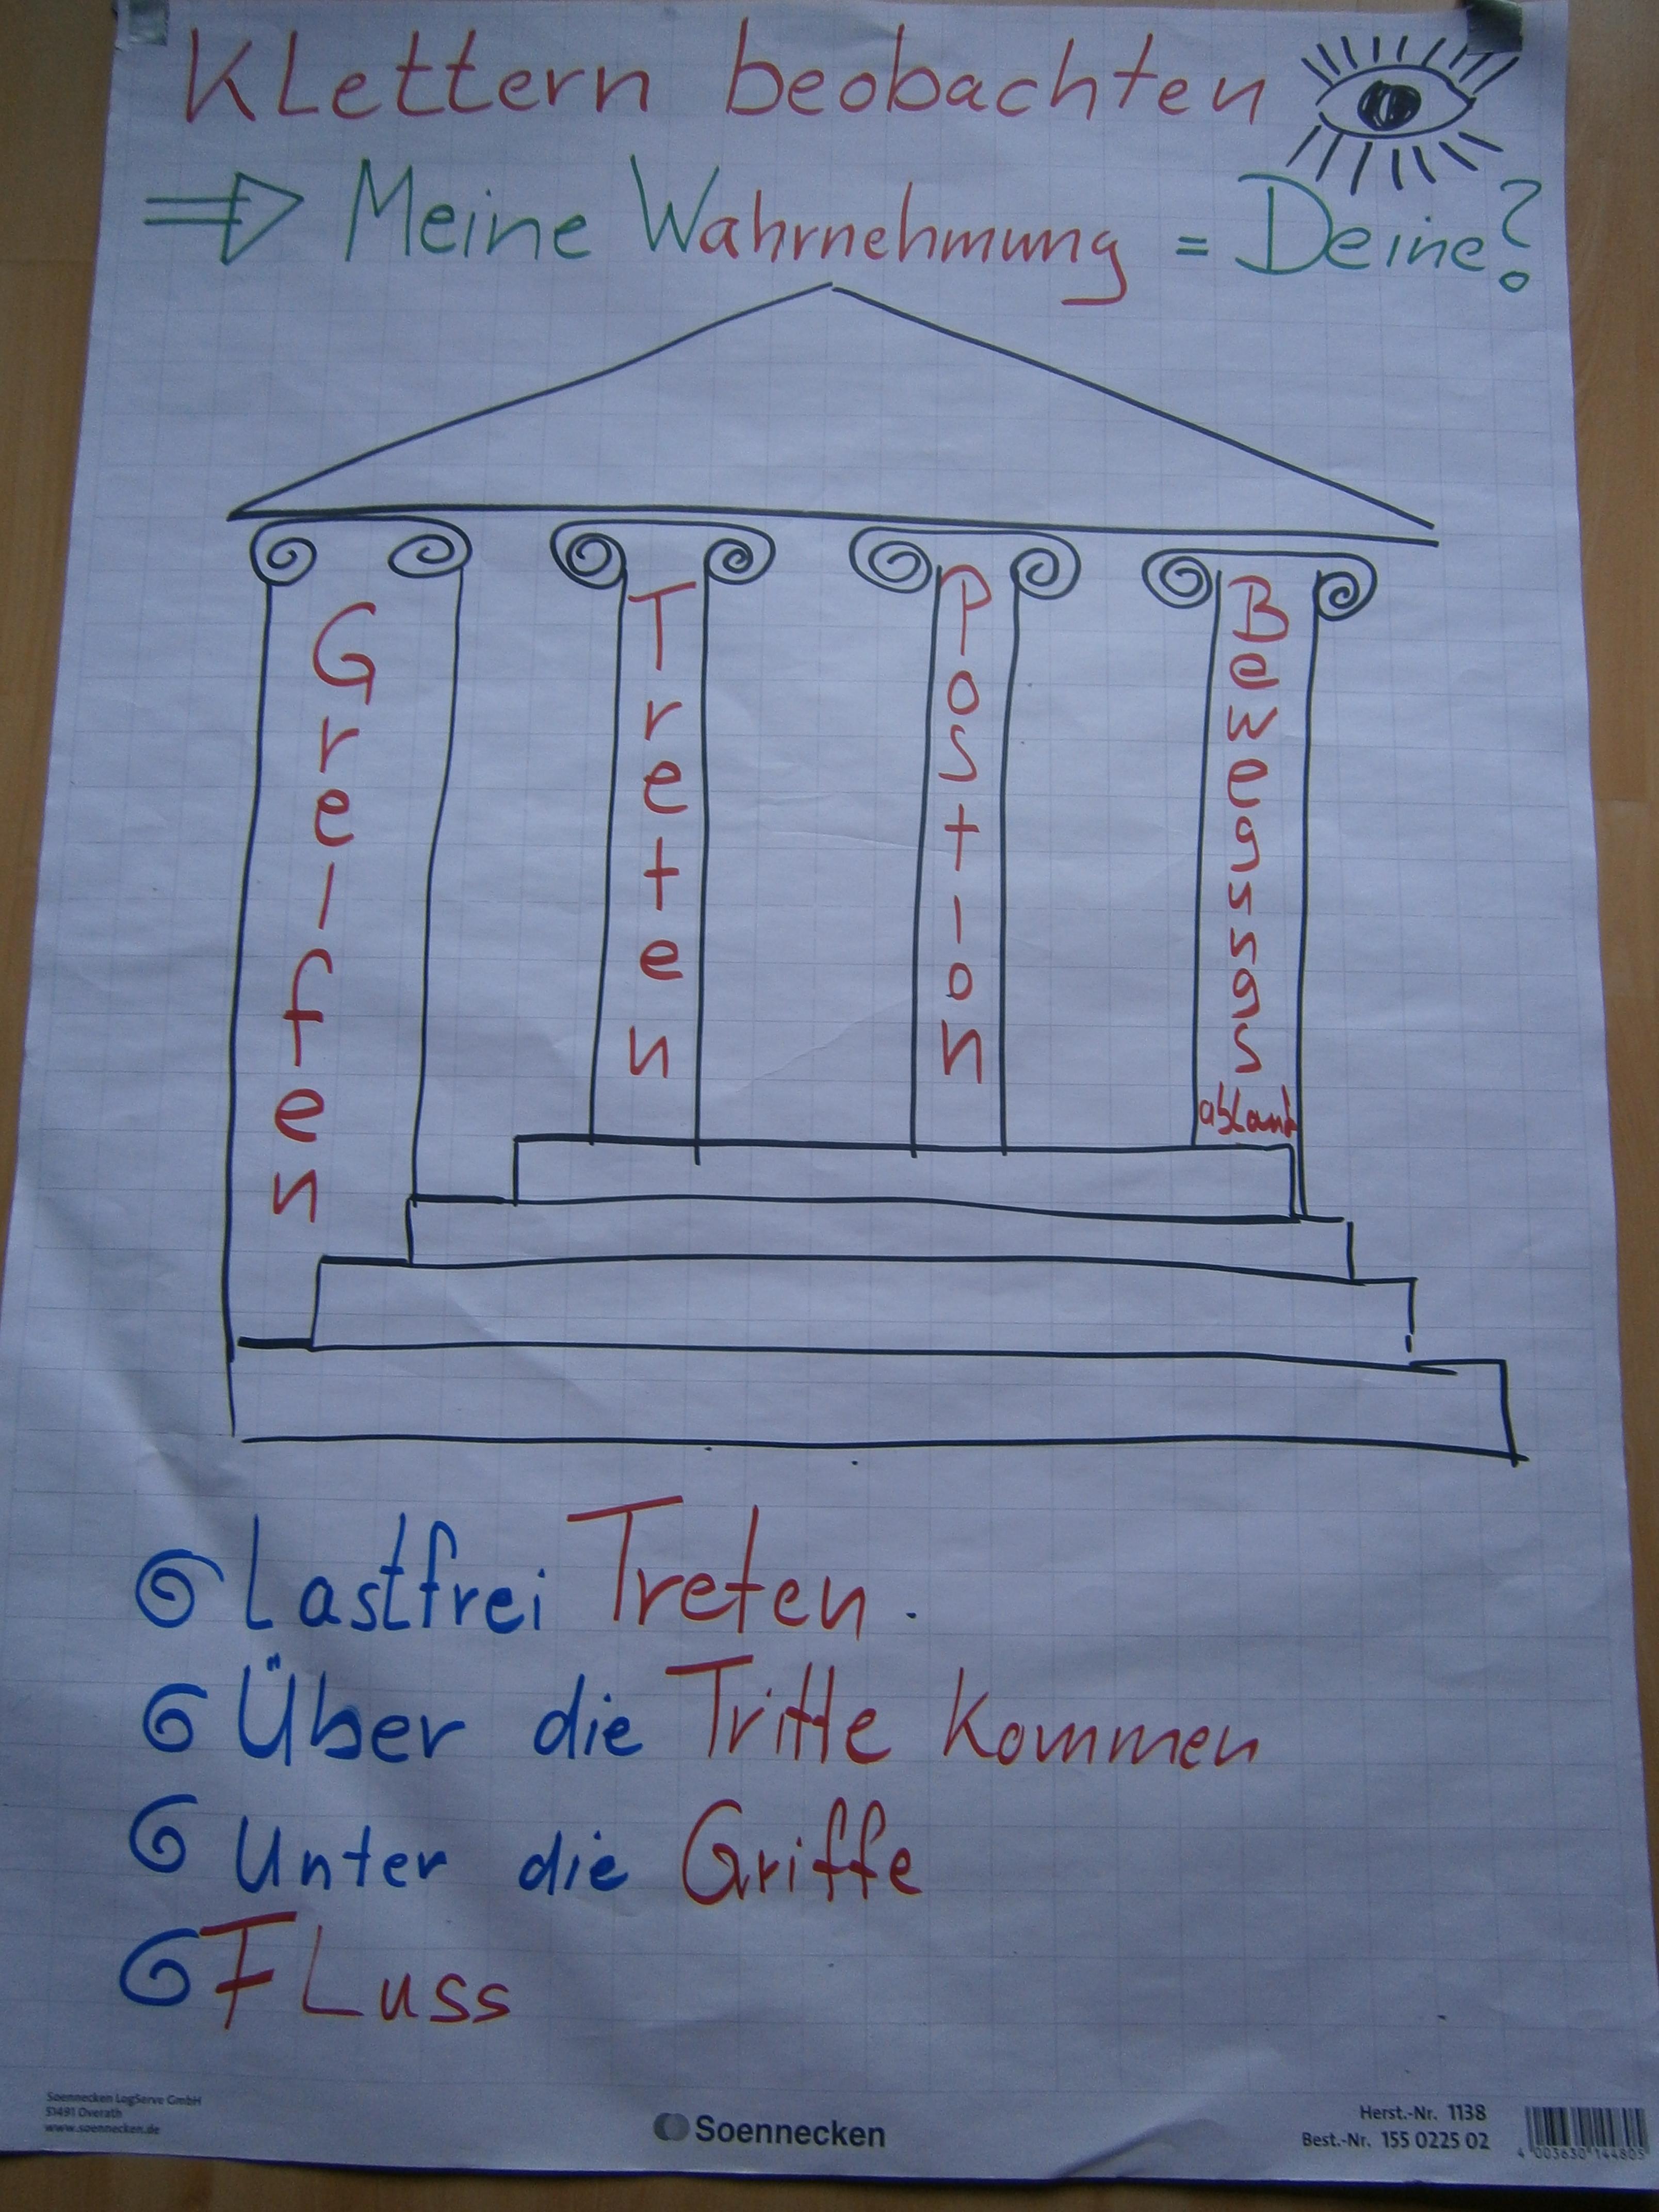 Klettern beobachten
⇒ Meine Wahrnehmung = Deine?
Greifen
Treten
Postion
Bewegungs
ablauf
Lastfrei Treten.
Über die Tritte kommen
Unter die Griffe
Fluss
Soennecken LogServe GmbH
51491 Overath
www.soennecken.de
Soennecken
Herst.-Nr. 1138
Best.-Nr. 155 0225 02
4 003630 144805